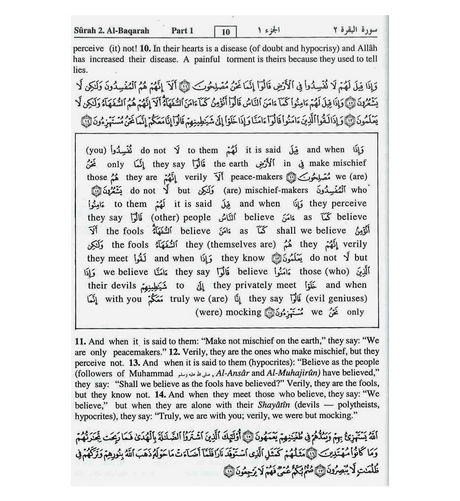 Sûrah 2. Al-Baqarah Part 1 10 الجزء ١ سورة البقرة ٢
perceive (it) not! 10. In their hearts is a disease (of doubt and hypocrisy) and Allâh
has increased their disease. A painful torment is theirs because they used to tell
lies.
وَإِذَا قِيلَ لَهُمْ لَا تُفْسِدُوا فِي ٱلْأَرْضِ قَالُوٓا إِنَّمَا نَحْنُ مُصْلِحُونَ ۝١١ أَلَآ إِنَّهُمْ هُمُ ٱلْمُفْسِدُونَ وَلَٰكِن لَّا
يَشْعُرُونَ ۝١٢ وَإِذَا قِيلَ لَهُمْ ءَامِنُوا كَمَآ ءَامَنَ ٱلنَّاسُ قَالُوٓا أَنُؤْمِنُ كَمَآ ءَامَنَ ٱلسُّفَهَآءُ أَلَآ إِنَّهُمْ هُمُ ٱلسُّفَهَآءُ وَلَٰكِن لَّا
يَعْلَمُونَ ۝١٣ وَإِذَا لَقُوا ٱلَّذِينَ ءَامَنُوا قَالُوٓا ءَامَنَّا وَإِذَا خَلَوْا إِلَىٰ شَيَٰطِينِهِمْ قَالُوٓا إِنَّا مَعَكُمْ إِنَّمَا نَحْنُ مُسْتَهْزِءُونَ ۝١٤
(you) do not لَا تُفْسِدُوا to them لَهُمْ it is said قِيلَ and when وَإِذَا
نَحْنُ only إِنَّمَا they say قَالُوٓا the earth ٱلْأَرْضِ in فِي make mischief
those هُمُ they are إِنَّهُمْ verily أَلَآ peace-makers مُصْلِحُونَ ۝١١ we (are)
يَشْعُرُونَ ۝١٢ do not لَّا but وَلَٰكِن (are) mischief-makers ٱلْمُفْسِدُونَ who
ءَامِنُوا to them لَهُمْ it is said قِيلَ and when وَإِذَا they perceive
they say قَالُوٓا (other) people ٱلنَّاسُ believe ءَامَنَ as كَمَآ believe
أَلَآ the fools ٱلسُّفَهَآءُ believe ءَامَنَ as كَمَآ shall we believe أَنُؤْمِنُ
وَلَٰكِن the fools ٱلسُّفَهَآءُ (they themselves are) هُمُ they إِنَّهُمْ verily
they meet لَقُوا and when وَإِذَا they know يَعْلَمُونَ ۝١٣ do not لَّا but
وَإِذَا we believe ءَامَنَّا they say قَالُوٓا believe ءَامَنُوا those (who) ٱلَّذِينَ
their devils شَيَٰطِينِهِمْ to إِلَىٰ they privately meet خَلَوْا and when
إِنَّمَا with you مَعَكُمْ truly we (are) إِنَّا they say قَالُوٓا (evil geniuses)
(were) mocking مُسْتَهْزِءُونَ ۝١٤ we نَحْنُ only
11. And when it is said to them: “Make not mischief on the earth,” they say: “We
are only peacemakers.” 12. Verily, they are the ones who make mischief, but they
perceive not. 13. And when it is said to them (hypocrites): “Believe as the people
(followers of Muhammad صلى الله عليه وسلم, Al-Ansâr and Al-Muhajirûn) have believed,”
they say: “Shall we believe as the fools have believed?” Verily, they are the fools,
but they know not. 14. And when they meet those who believe, they say: “We
believe,” but when they are alone with their Shayâtîn (devils — polytheists,
hypocrites), they say: “Truly, we are with you; verily, we were but mocking.”
ٱللَّهُ يَسْتَهْزِئُ بِهِمْ وَيَمُدُّهُمْ فِي طُغْيَٰنِهِمْ يَعْمَهُونَ ۝١٥ أُولَٰٓئِكَ ٱلَّذِينَ ٱشْتَرَوُا ٱلضَّلَٰلَةَ بِٱلْهُدَىٰ فَمَا رَبِحَت تِّجَٰرَتُهُمْ
وَمَا كَانُوا مُهْتَدِينَ ۝١٦ مَثَلُهُمْ كَمَثَلِ ٱلَّذِي ٱسْتَوْقَدَ نَارًا فَلَمَّآ أَضَآءَتْ مَا حَوْلَهُۥ ذَهَبَ ٱللَّهُ بِنُورِهِمْ وَتَرَكَهُمْ فِي
ظُلُمَٰتٍ لَّا يُبْصِرُونَ ۝١٧ صُمٌّۢ بُكْمٌ عُمْيٌ فَهُمْ لَا يَرْجِعُونَ ۝١٨